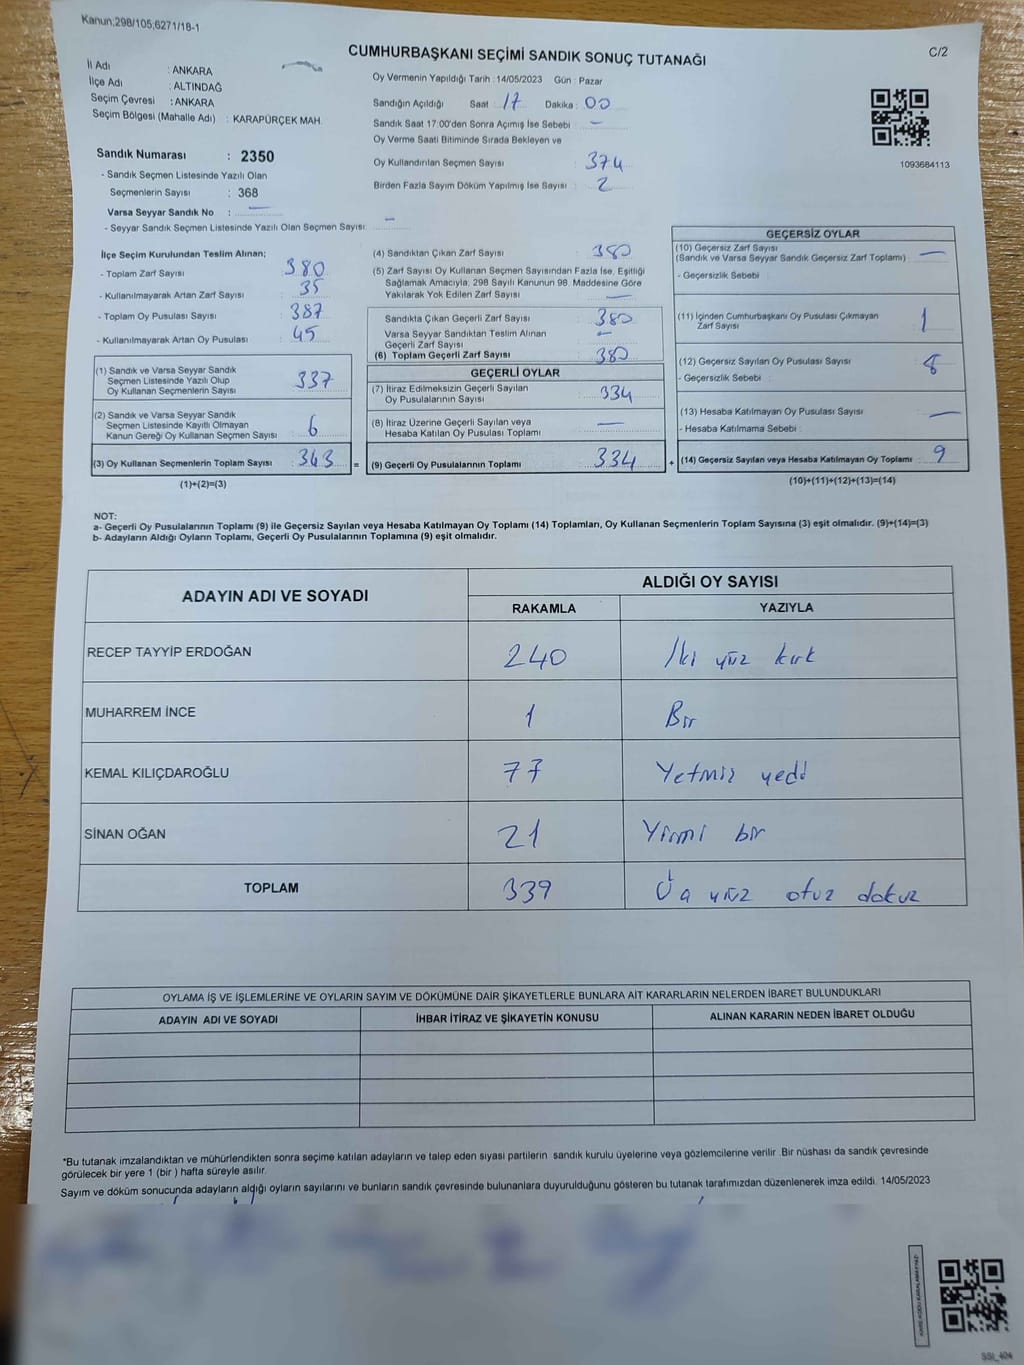 Kanun;298/105,6271/18-1
CUMHURBAŞKANI SEÇİMİ SANDIK SONUÇ TUTANAĞI
C/2
İl Adı : ANKARA
İlçe Adı : ALTINDAĞ
Seçim Çevresi : ANKARA
Seçim Bölgesi (Mahalle Adı) : KARAPÜRÇEK MAH.
Sandık Numarası : 2350
- Sandık Seçmen Listesinde Yazılı Olan
Seçmenlerin Sayısı : 368
Varsa Seyyar Sandık No : —
- Seyyar Sandık Seçmen Listesinde Yazılı Olan Seçmen Sayısı: —
Oy Vermenin Yapıldığı Tarih : 14/05/2023 Gün : Pazar
Sandığın Açıldığı Saat : 17 Dakika : 00
Sandık Saat 17:00'den Sonra Açımış İse Sebebi : —
Oy Verme Saati Bitiminde Sırada Bekleyen ve
Oy Kullandırılan Seçmen Sayısı : 374
Birden Fazla Sayım Döküm Yapılmış İse Sayısı : 2
1093684113
İlçe Seçim Kurulundan Teslim Alınan;
- Toplam Zarf Sayısı : 380
- Kullanılmayarak Artan Zarf Sayısı : 35
- Toplam Oy Pusulası Sayısı : 387
- Kullanılmayarak Artan Oy Pusulası : 45
(1) Sandık ve Varsa Seyyar Sandık
Seçmen Listesinde Yazılı Olup
Oy Kullanan Seçmenlerin Sayısı : 337
(2) Sandık ve Varsa Seyyar Sandık
Seçmen Listesinde Kayıtlı Olmayan
Kanun Gereği Oy Kullanan Seçmen Sayısı : 6
(3) Oy Kullanan Seçmenlerin Toplam Sayısı : 343 =
(1)+(2)=(3)
(4) Sandıktan Çıkan Zarf Sayısı : 380
(5) Zarf Sayısı Oy Kullanan Seçmen Sayısından Fazla İse, Eşitliği
Sağlamak Amacıyla; 298 Sayılı Kanunun 98. Maddesine Göre
Yakılarak Yok Edilen Zarf Sayısı : —
Sandıkta Çıkan Geçerli Zarf Sayısı : 380
Varsa Seyyar Sandıktan Teslim Alınan
Geçerli Zarf Sayısı : —
(6) Toplam Geçerli Zarf Sayısı : 380
GEÇERLİ OYLAR
(7) İtiraz Edilmeksizin Geçerli Sayılan
Oy Pusulalarının Sayısı : 334
(8) İtiraz Üzerine Geçerli Sayılan veya
Hesaba Katılan Oy Pusulası Toplamı : —
(9) Geçerli Oy Pusulalarının Toplamı : 334 +
GEÇERSİZ OYLAR
(10) Geçersiz Zarf Sayısı
(Sandık ve Varsa Seyyar Sandık Geçersiz Zarf Toplamı) : —
- Geçersizlik Sebebi :
(11) İçinden Cumhurbaşkanı Oy Pusulası Çıkmayan
Zarf Sayısı : 1
(12) Geçersiz Sayılan Oy Pusulası Sayısı : 8
- Geçersizlik Sebebi :
(13) Hesaba Katılmayan Oy Pusulası Sayısı : —
- Hesaba Katılmama Sebebi :
(14) Geçersiz Sayılan veya Hesaba Katılmayan Oy Toplamı : 9
(10)+(11)+(12)+(13)=(14)
NOT:
a- Geçerli Oy Pusulalarının Toplamı (9) ile Geçersiz Sayılan veya Hesaba Katılmayan Oy Toplamı (14) Toplamları, Oy Kullanan Seçmenlerin Toplam Sayısına (3) eşit olmalıdır. (9)+(14)=(3)
b- Adayların Aldığı Oyların Toplamı, Geçerli Oy Pusulalarının Toplamına (9) eşit olmalıdır.
ADAYIN ADI VE SOYADI ALDIĞI OY SAYISI
RAKAMLA YAZIYLA
RECEP TAYYİP ERDOĞAN 240 İki yüz kırk
MUHARREM İNCE 1 Bir
KEMAL KILIÇDAROĞLU 77 Yetmiş yedi
SİNAN OĞAN 21 Yirmi bir
TOPLAM 339 Üç yüz otuz dokuz
OYLAMA İŞ VE İŞLEMLERİNE VE OYLARIN SAYIM VE DÖKÜMÜNE DAİR ŞİKAYETLERLE BUNLARA AİT KARARLARIN NELERDEN İBARET BULUNDUKLARI
ADAYIN ADI VE SOYADI İHBAR İTİRAZ VE ŞİKAYETİN KONUSU ALINAN KARARIN NEDEN İBARET OLDUĞU
*Bu tutanak imzalandıktan ve mühürlendikten sonra seçime katılan adayların ve talep eden siyasi partilerin sandık kurulu üyelerine veya gözlemcilerine verilir. Bir nüshası da sandık çevresinde
görülecek bir yere 1 (bir ) hafta süreyle asılır.
Sayım ve döküm sonucunda adayların aldığı oyların sayılarını ve bunların sandık çevresinde bulunanlara duyurulduğunu gösteren bu tutanak tarafımızdan düzenlenerek imza edildi. 14/05/2023